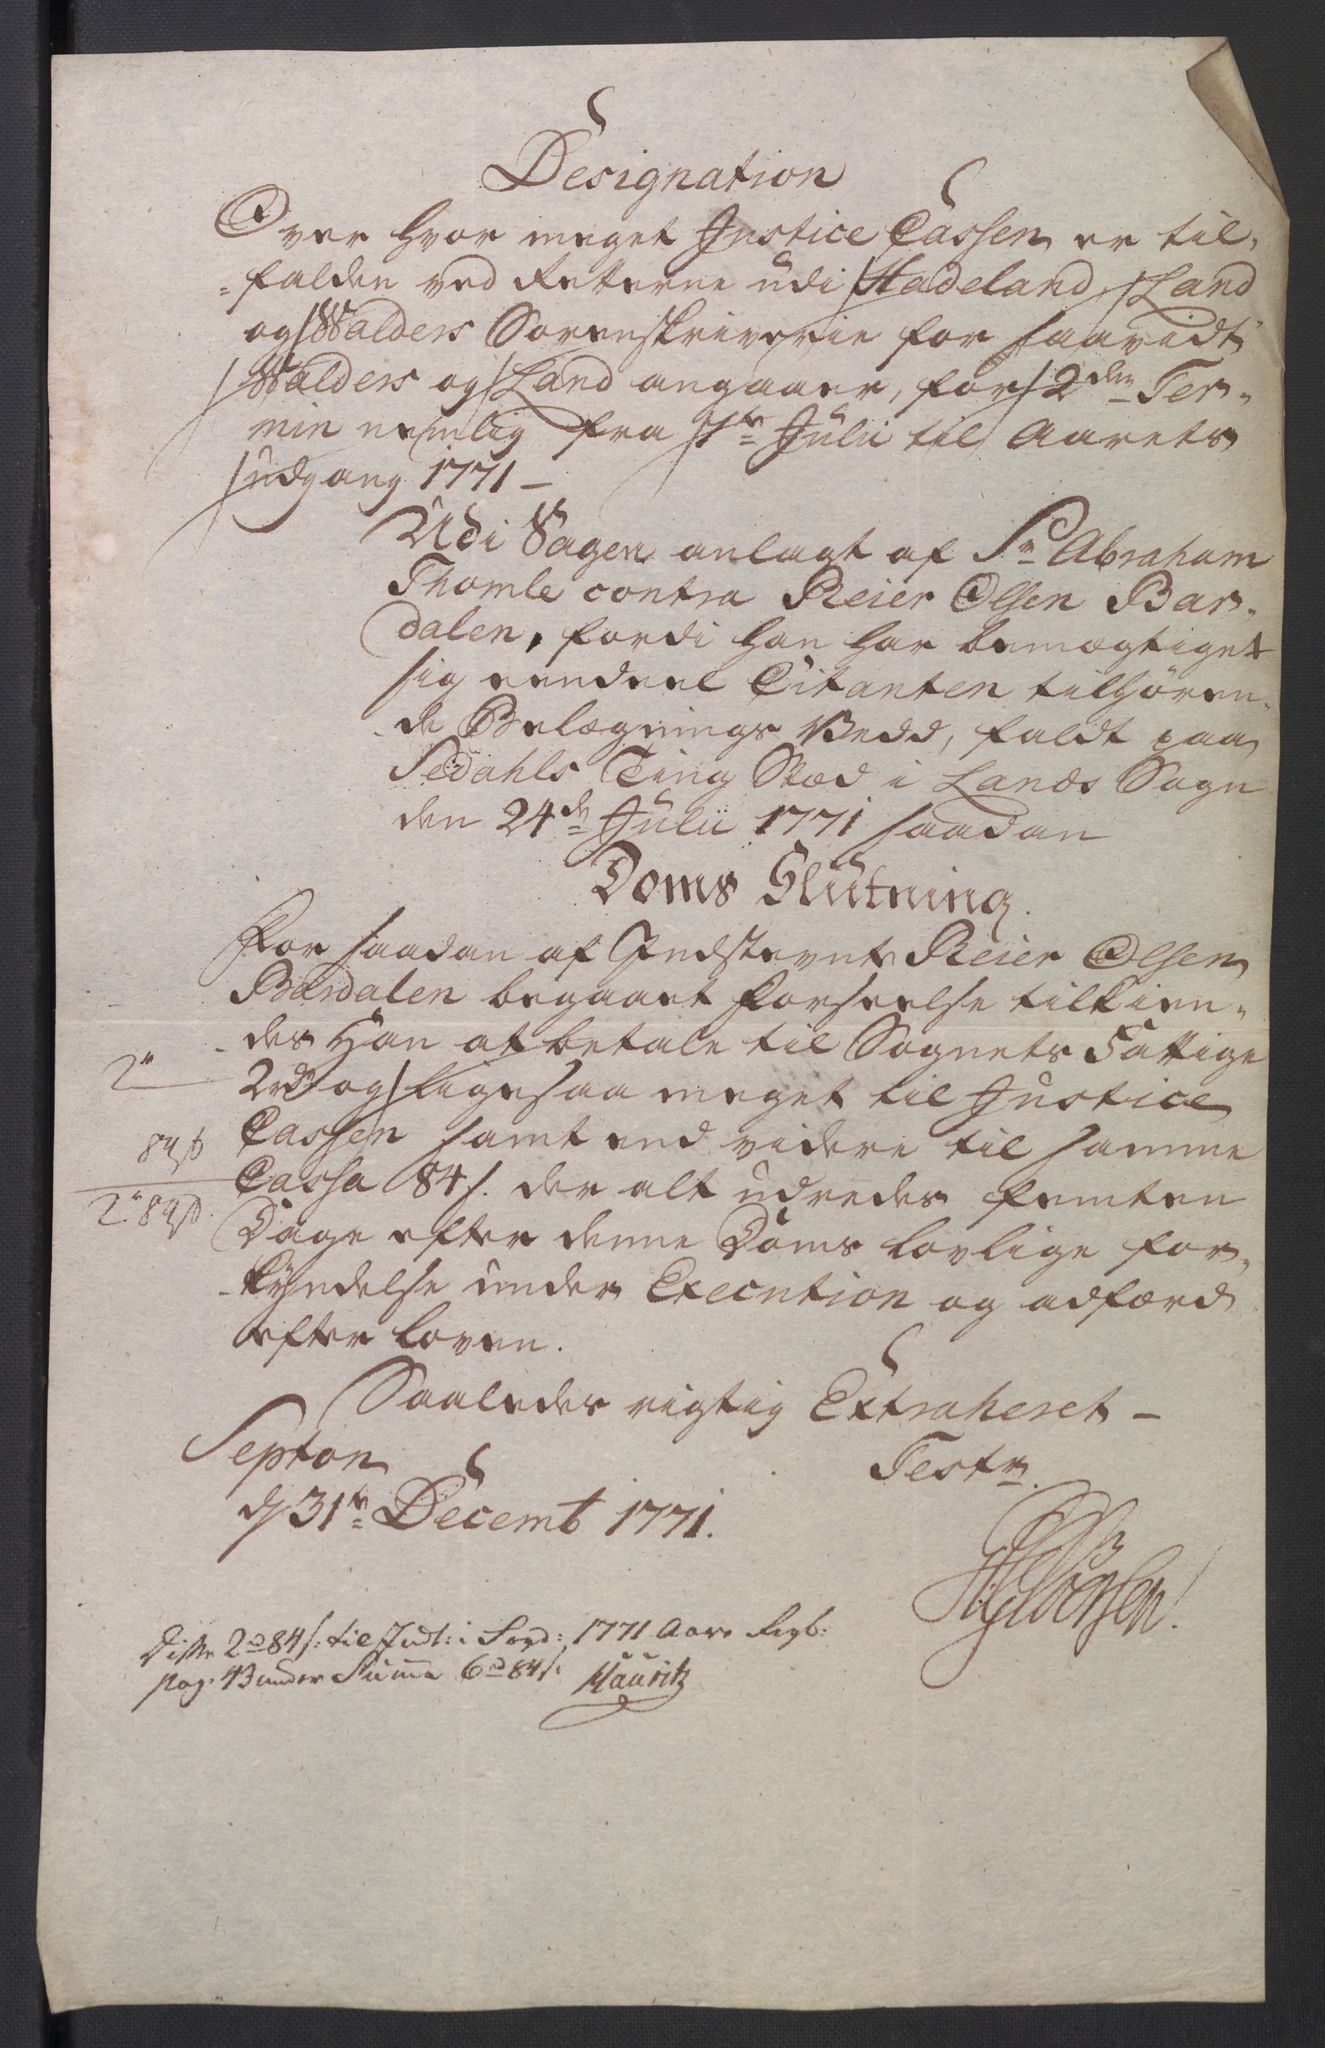 Designation
Over hvor meget Justice Cassen er til-
falden ved Retterne udi Hadeland, Land
og Walders Sorenskriverie for saavidt
Walders og Land angaaer, for 2den Ter-
min nemlig fra 1te Julii til Aarets
udgang 1771 –
Udi Sagen anlagt af Sr Abraham
Thomle contra Reier Olsen Bar-
dalen, fordi han har bemægtiget
sig eendeel Citanten tilhören-
de Belægnings Vedd, faldt paa
Sedahls Ting Stæd i Lands Sogn
den 24de Julii 1771 saadan
Doms Slutning.
For saadan af Indstevnte Reier Olsen
Bardalen begaaet Forseelse tilkien-
des Han at betale til Sognets Fattige
2" 2rdr og ligesaa meget til Justice
84s Cassen samt end videre til samme
2"84s. Cassa 84s. der alt udredes femten
Dage efter denne Doms lovlige for-
kyndelse under Execution og adfærd
efter loven.
Saaledes rigtig Extraheret –
Septon Testr.
d 31te Decemb 1771.
Disse 2 84s: til Indt: i 1771 Aars Regb:
pag. 43 under Summa 6 84s. Hauritz